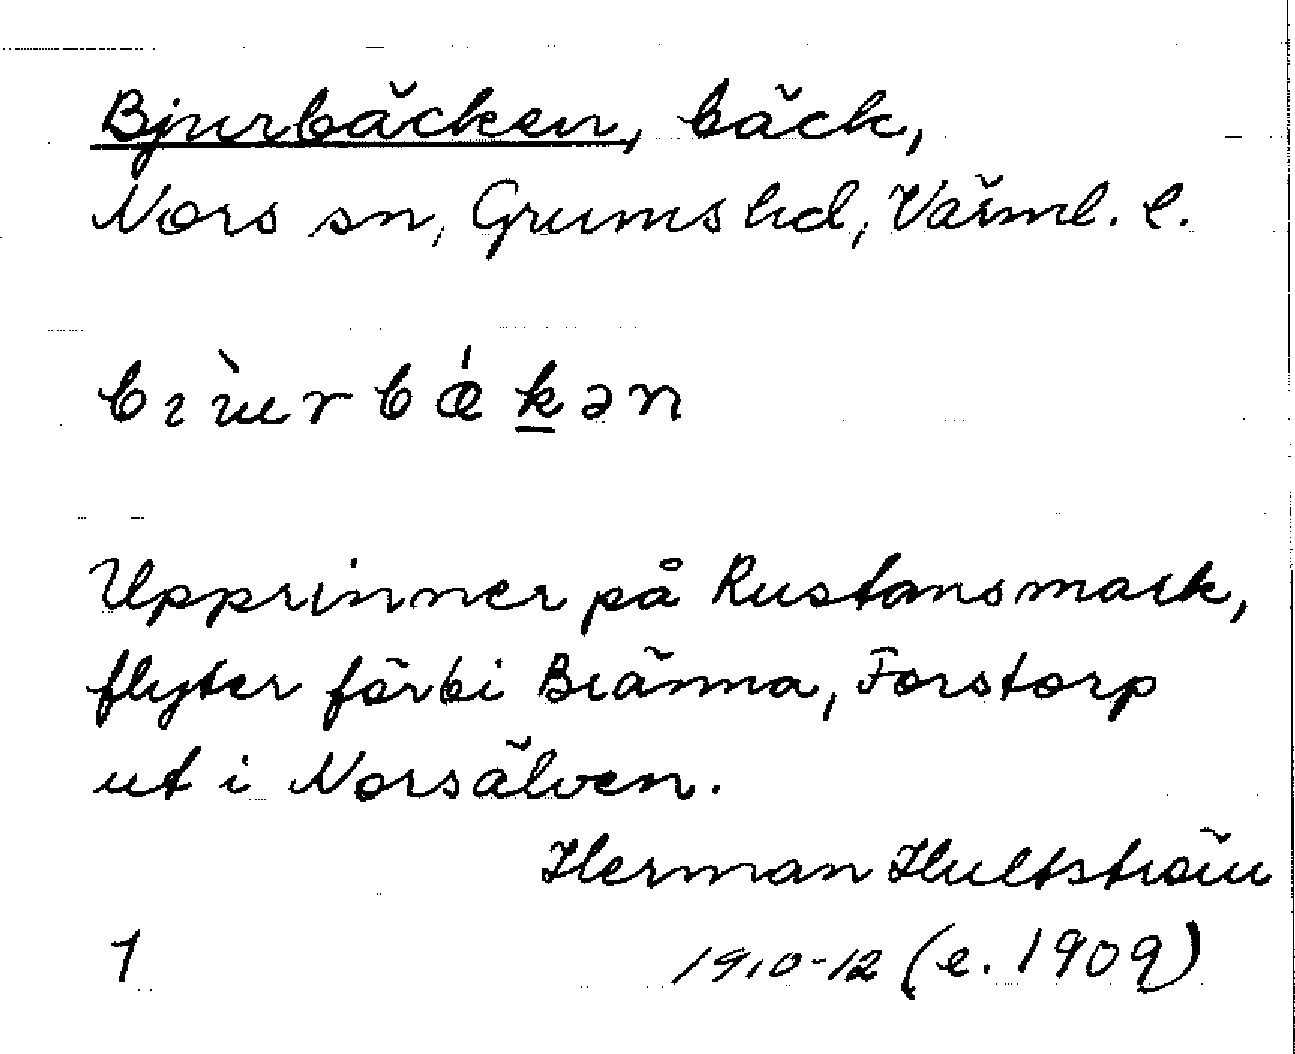 Bjurbäcken, bäck,
Nors sn, Grums hd, Värml. l.
bıùrbǽkən
Upprinner på Rustansmark,
flyter förbi Bränna, Forstorp
ut i Norsälven.
Herman Hultström
1 1910-12 (e. 1909)